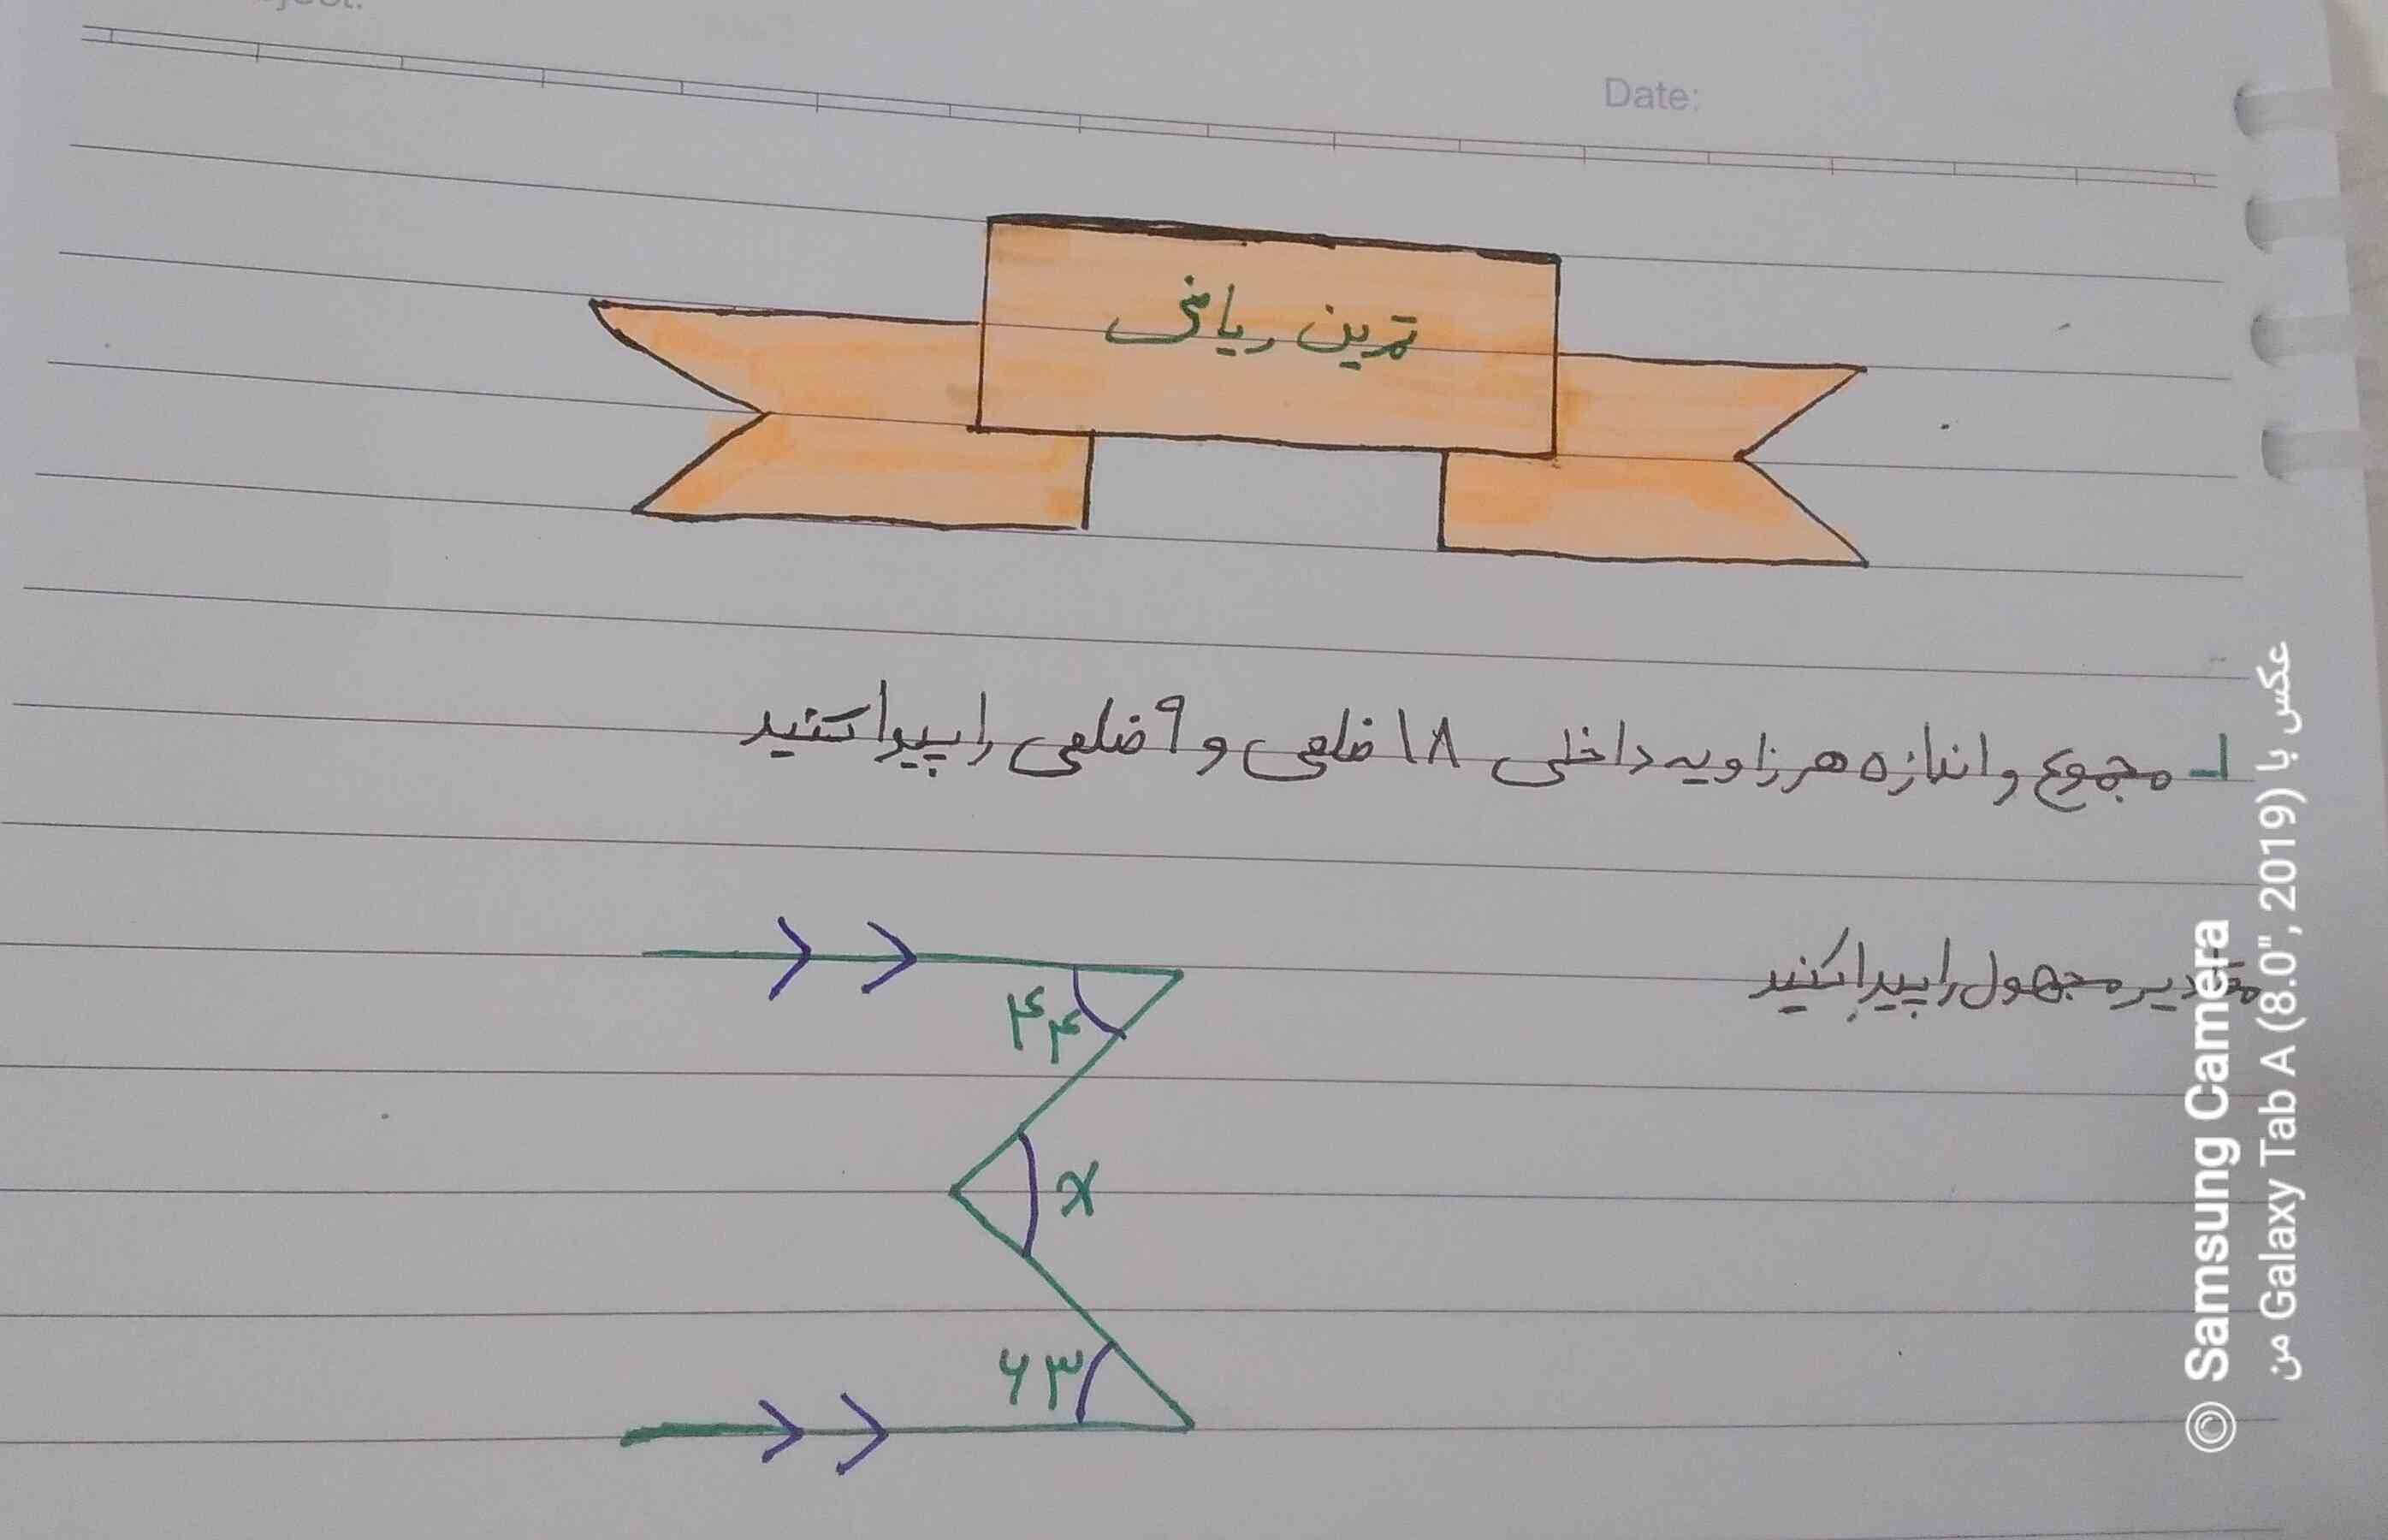 Date:
تمرین ریاضی
۱- مجموع و اندازه هر زاویه داخلی ۱۸ ضلعی و ۹ ضلعی را پیدا کنید
مقادیر مجهول را پیدا کنید
۴۴
x
۶۳
© Samsung Camera
عکس با (Galaxy Tab A (8.0", 2019 من